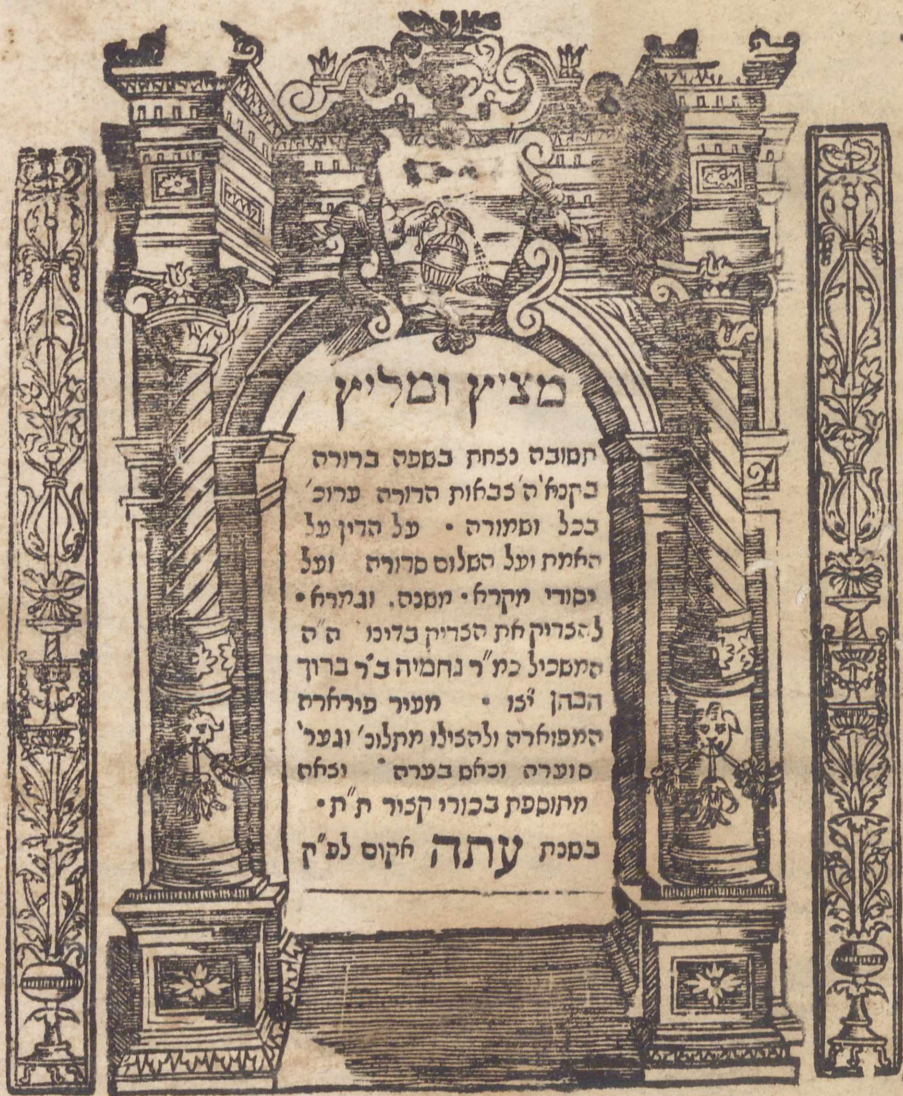 מציץ ומליץ
תשובה נצחת בשפה ברורה
בקנא'ה' צבאות הדורה ערוכ'
בכל ושמורה • על הדין על
האמת ועל השלום סדורה ועל
יסודי מקרא • משנה. וגמרא •
להצדיק את הצדיק בדינו ה"ה
המשכיל כמ"ר נחמיה ב'ר ברוך
הכהן יצו • מעיר פיררארה
המפוארה ולהצילו מתלונ' וגער'
סוערה וכאש בערה • וזאת
מתוספת בכורי קציר ת"ת •
בשנת עתה אקום לפ"ק